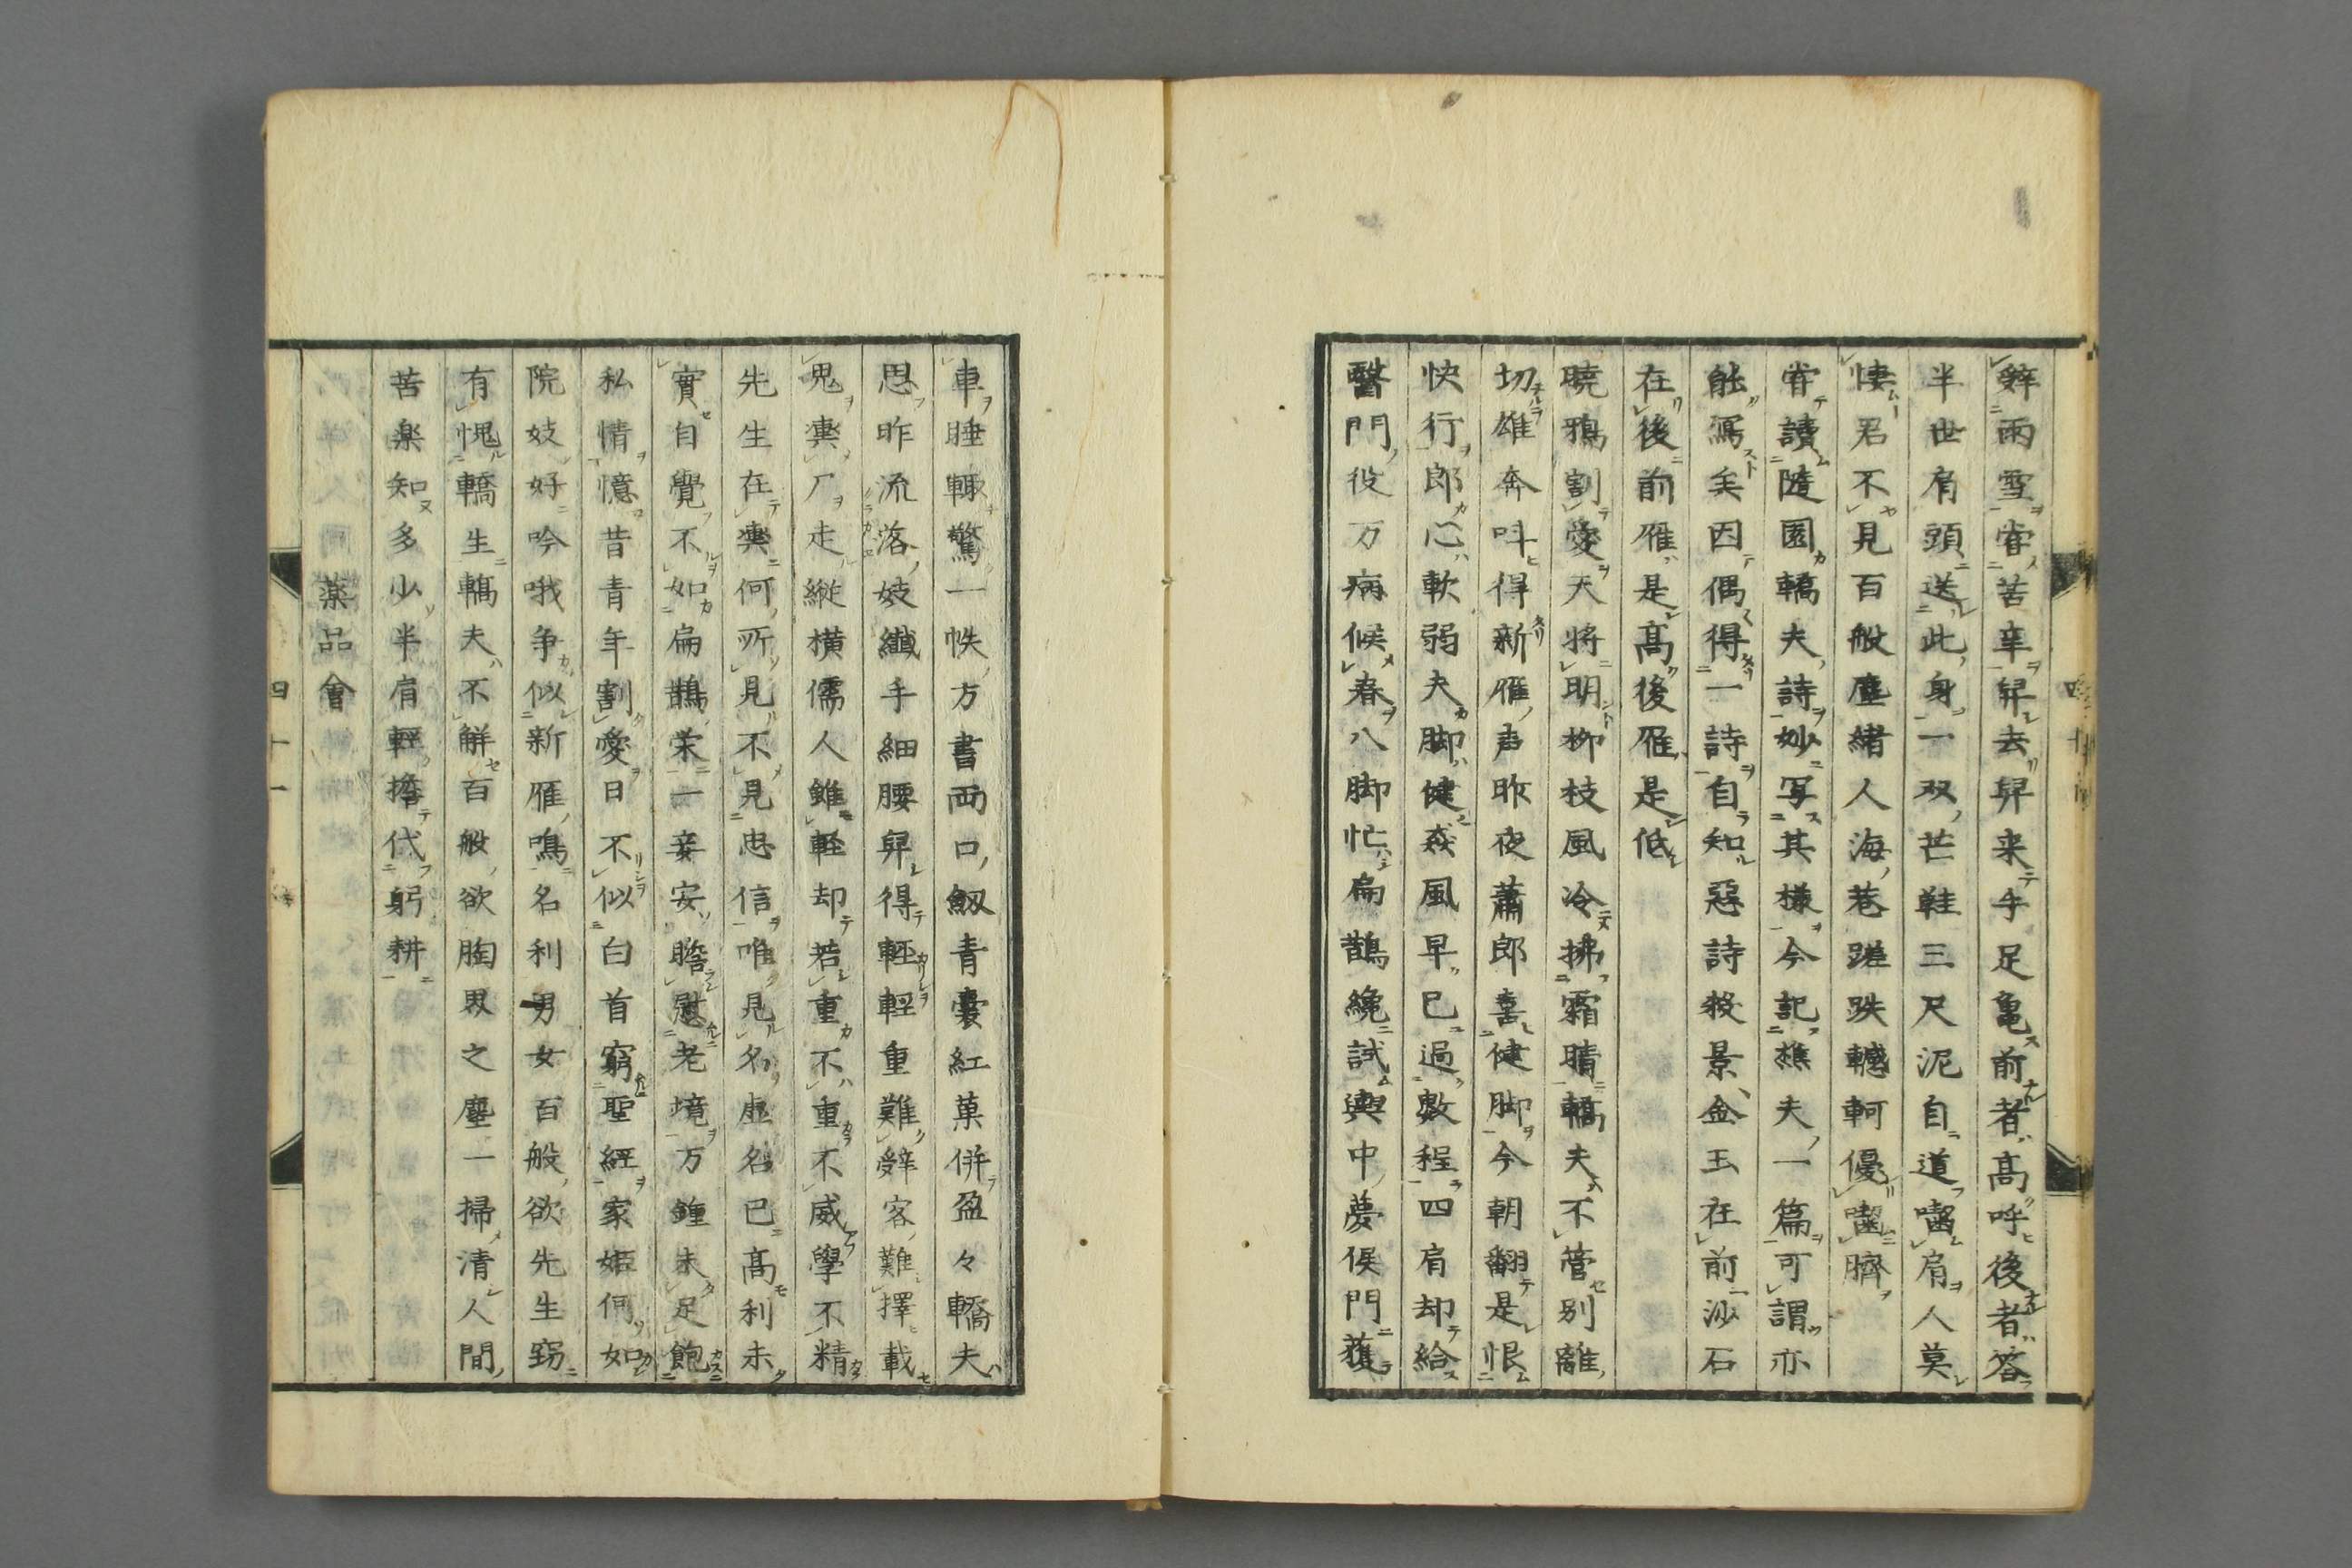 辤雨雪甞苦辛舁去舁来手足亀前者高呼後者答
半世肩頭送此身一双芒鞋三尺泥自道囓肩人莫
悽君不見百般塵緒人海巷蹉跌轗軻優囓臍
甞讀隨園轎夫詩妙写其様今記樵夫一篇可謂亦
能寫矣因偶得一詩自知惡詩殺景金玉在前沙石
在後前雁是高後雁是低
曉鴉割愛天將明柳枝風冷拂霜晴轎夫不管別離
切雄奔叫得新雁声昨夜蕭郎喜健脚今朝翻是恨
快行郎心軟弱夫脚健猋風早已過數程四肩却給
醫門役万病候春八脚忙扁鵲纔試輿中夢侯門獲
車睡輙驚一帙方書両口劔青囊紅菓併盈々轎夫
思昨流落妓纖手細腰舁得輕輕重難辤客難擇載
鬼輿厂走縱横儒人雖軽却若重不重不威學不精
先生在輿何所見不見忠信唯見名虚名已高利未
實自覺不如扁鵲栄一妾安瞻慰老境万鍾未足飽
私情憶昔青年割愛日不似白首窮聖經家姬何如
院妓好吟哦争似新雁鳴名利男女百般欲先生窮
有愧轎生轎夫不解百般欲胸裏之塵一掃清人間
苦楽知多少半肩輕擔代躬耕
薬品會
四十一